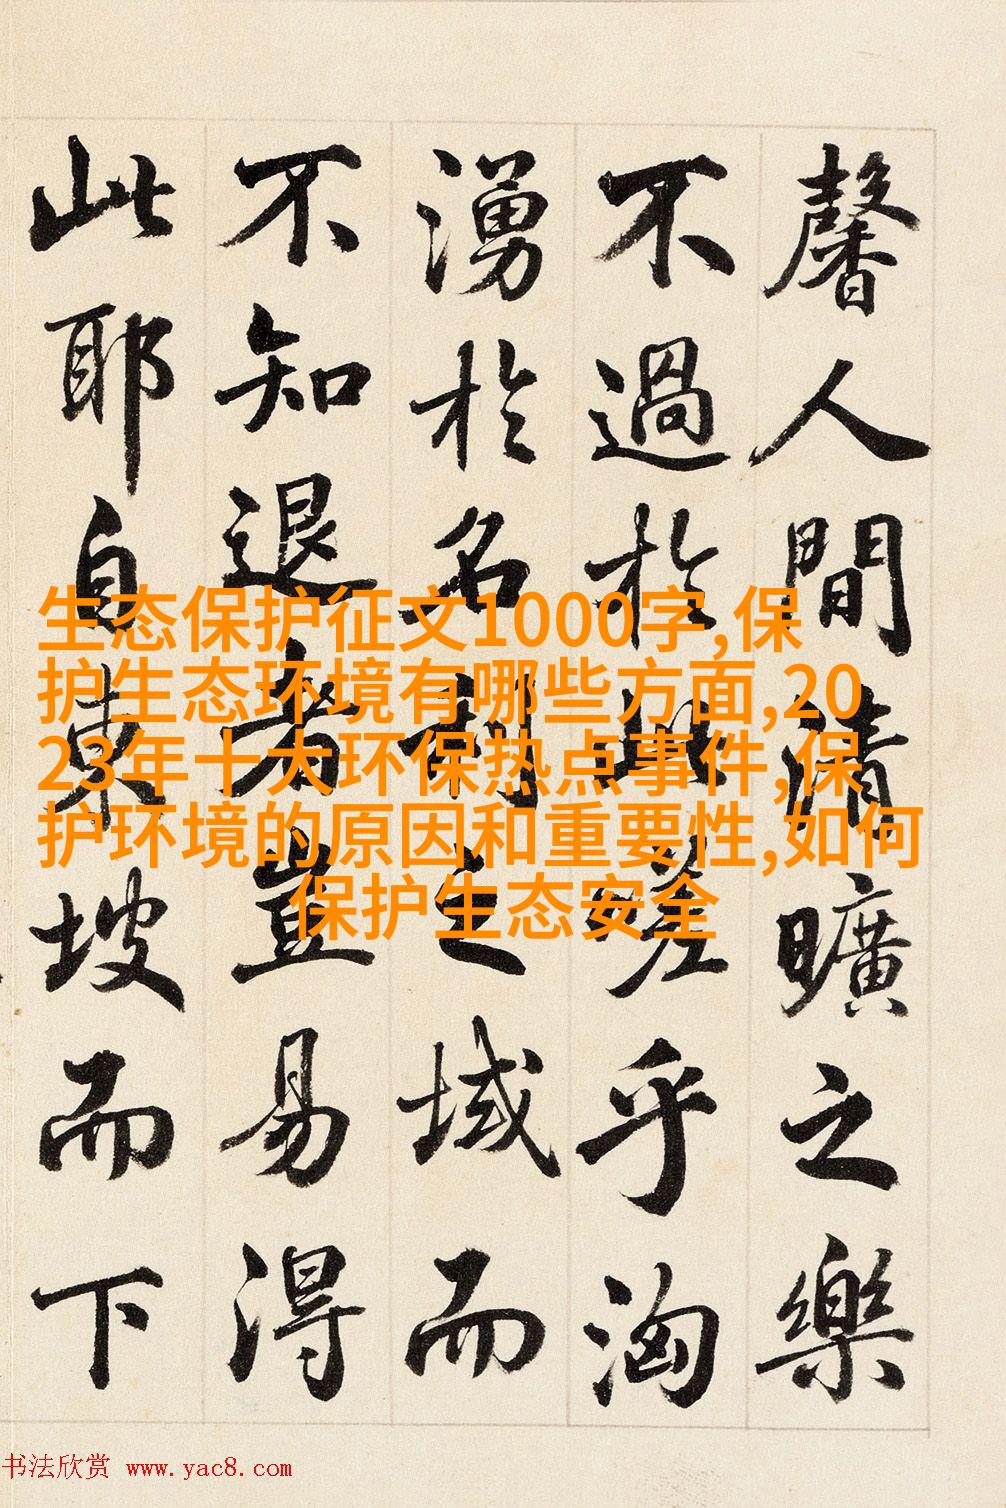 馨人間清曠之樂
不過於此嗟乎洶
湧於名之域而
不知退者豈易得
此耶自東坡而下
生态保护征文1000字,保
护生态环境有哪些方面,20
23年十大环保热点事件,保
护环境的原因和重要性,如何
保护生态安全
书法欣赏 www.yac8.com